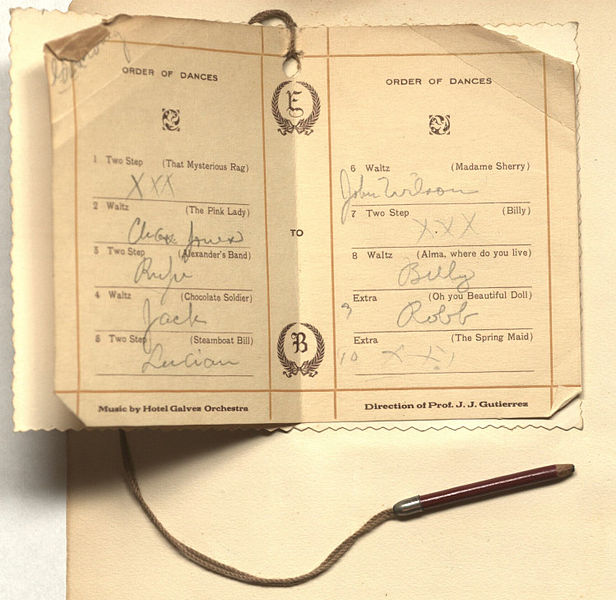 ORDER OF DANCES
1 Two Step (That Mysterious Rag)
XXX
2 Waltz (The Pink Lady)
Jones
3 Two Step (Alexander's Band)
Rufus
4 Waltz (Chocolate Soldier)
Jack
5 Two Step (Steamboat Bill)
Lucian
Music by Hotel Galvez Orchestra
E
TO
B
ORDER OF DANCES
6 Waltz (Madame Sherry)
John Wilson
7 Two Step (Billy)
X.X.X
8 Waltz (Alma, where do you live)
Billy
Extra (Oh you Beautiful Doll)
9 Robb
Extra (The Spring Maid)
10 X X
Direction of Prof. J. J. Gutierrez